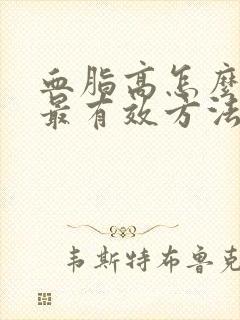 血脂高怎麼
最有效方法
韦斯特布鲁克